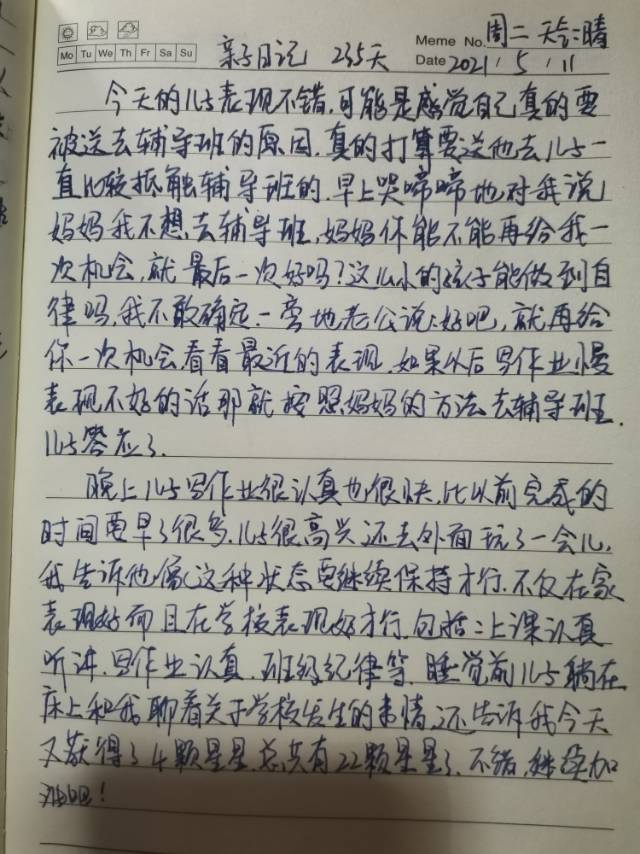 Meme No. 周二 天气:晴
Mo Tu We Th Fr Sa Su
亲子日记 235天
Date 2021 / 5 / 11
今天的儿子表现不错,可能是感觉自己真的要
被送去辅导班的原因,真的打算要送他去儿子一
直比较抵触辅导班的,早上哭啼啼地对我说
妈妈我不想去辅导班,妈妈你能不能再给我一
次机会,就最后一次好吗?这么小的孩子能做到自
律吗,我不敢确定,一旁地老公说:好吧,就再给
你一次机会,看看最近的表现,如果以后写作业慢
表现不好的话那就按照妈妈的方法去辅导班,
儿子答应了,
晚上儿子写作业很认真也很快,比以前完成的
时间要早了很多,儿子很高兴还去外面玩了一会儿,
我告诉他像这种状态要继续保持才行,不仅在家
表现好而且在学校表现好才行,包括:上课认真
听讲,写作业认真,班级纪律等,睡觉前儿子躺在
床上和我聊着关于学校发生的事情,还告诉我今天
又获得了4颗星星,总共有22颗星星了,不错,继续加
油吧!